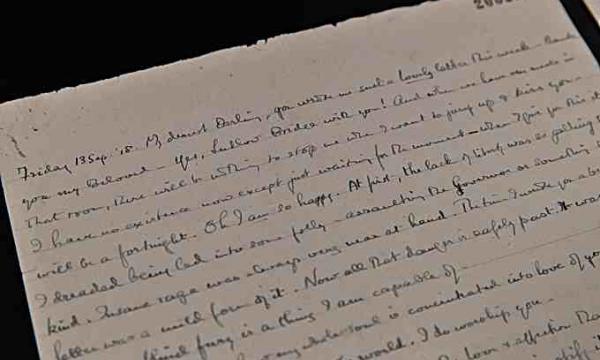 Friday 13 Sep. '18. My dearest Darling, you wrote me such a lovely letter this week - thank
you my Beloved - Yes, Ludlow Bridge with you! And when we have our
that room, there will be nothing to stop me when I want to jump up & kiss you.
I have no existence now except just waiting for the moment - when I give you this it
will be a fortnight. Oh I am so happy. At first, the lack of liberty was so galling
I dreaded being led into some folly - assaulting the Governor or something
kind. Insane rage was always very near at hand. The time I wrote you
letter was a mild form of it. Now all that danger is safely past. It was
blind fury is a thing I am capable of -
my whole soul is concentrated into love of you
world. I do worship you.
love & affection